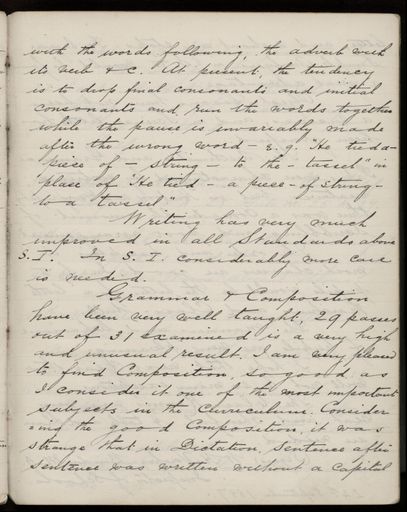 with the words following, the adverb with
its verb & c. At present, the tendency
is to drop final consonants and initial
consonants and run the words together
while the pause is invariably made
after the wrong word - e.g. "He tied a-
piece of - string - to the - tassel" in
place of "He tied - a piece - of string -
to a tassel"
Writing has very much
improved in all Standards above
S. I. In S. I. considerably more care
is needed.
Grammar & Composition
have been very well taught, 29 passes
out of 31 examined is a very high
and unusual result. I am very pleased
to find Composition so good as
I consider it one of the most important
subjects in the Curriculum. Consider
-ing the good Composition, it was
strange that in Dictation, sentence after
sentence was written without a Capital